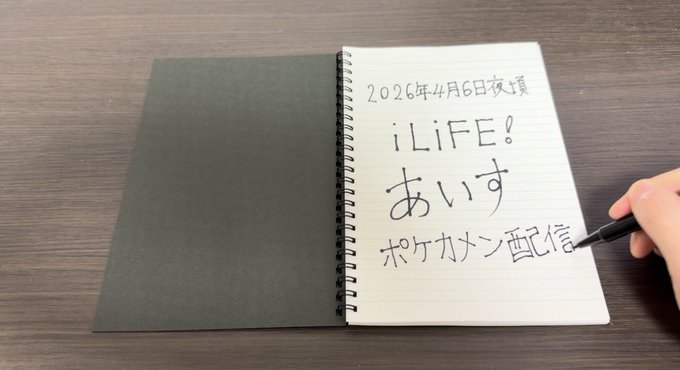 2026年4月6日夜頃
iLiFE!
あいす
ポケカメン配信